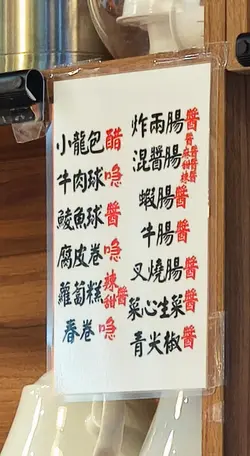 炸兩腸醬
混醬腸醬麻醬甜醬辣醬
蝦腸醬
牛腸醬
叉燒腸醬
菜心生菜醬
青尖椒醬
小龍包醋
牛肉球喼
鯪魚球醬
腐皮卷喼
蘿蔔糕辣甜醬
春卷喼